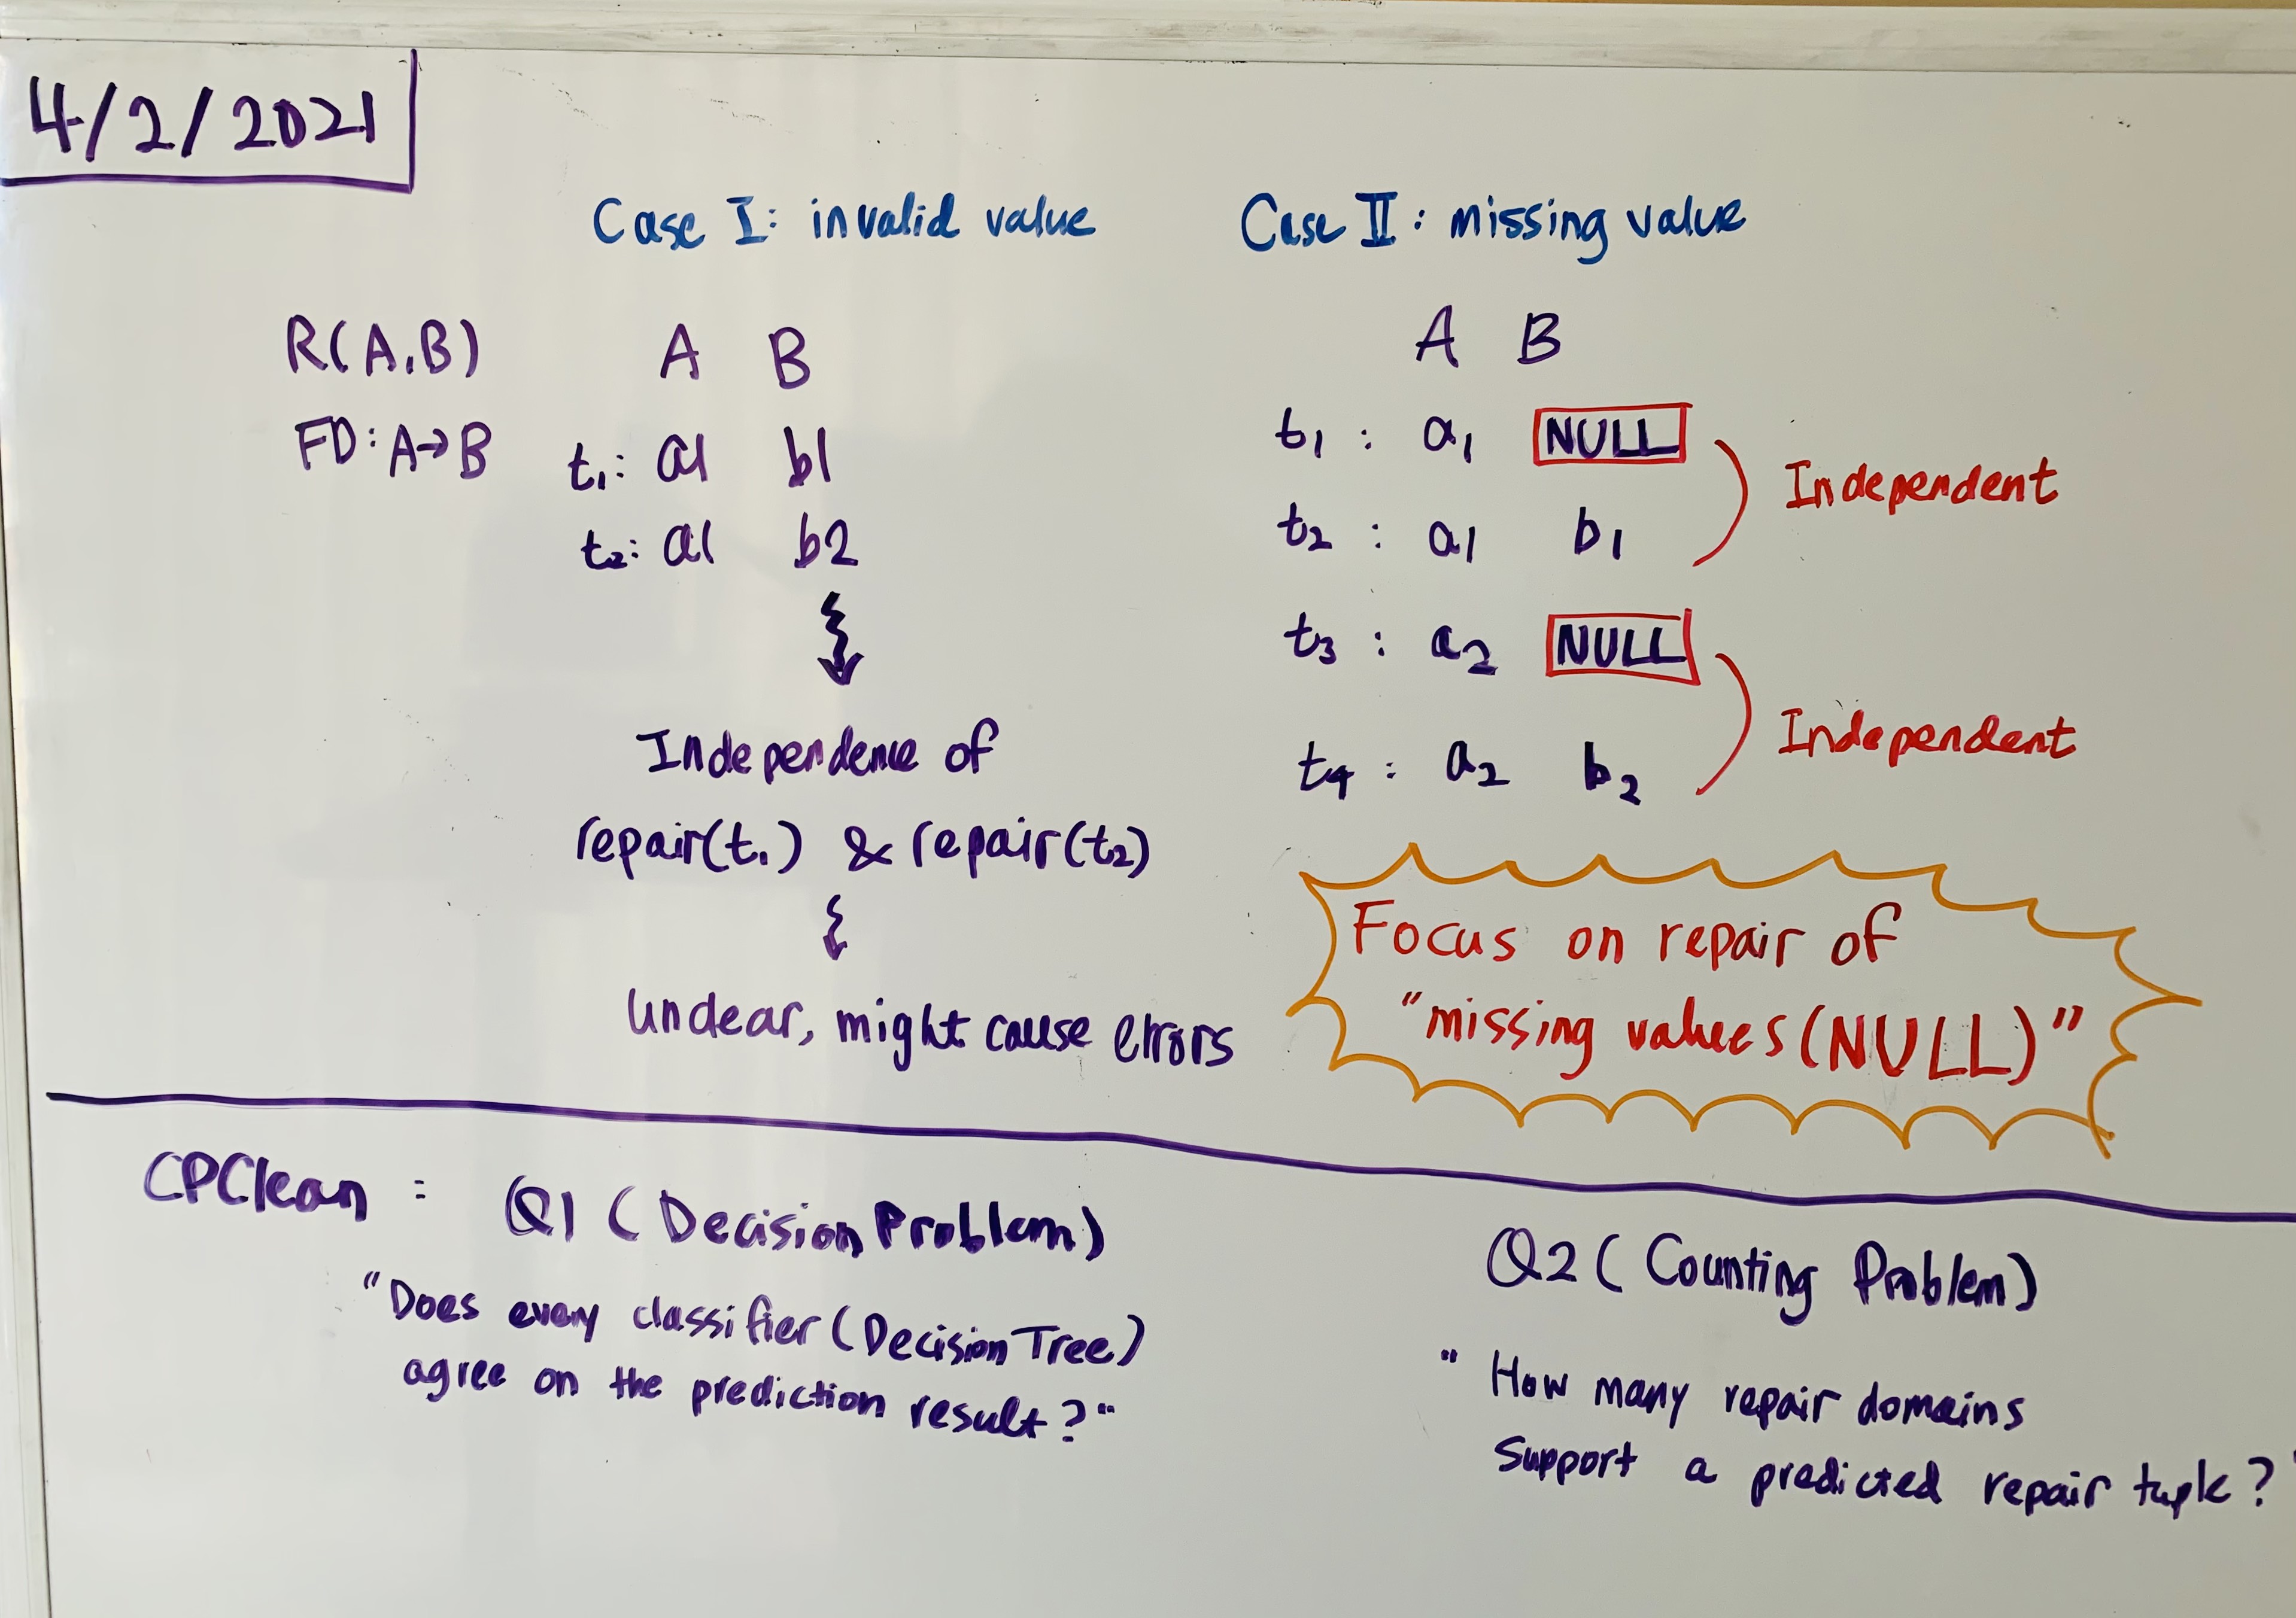 4/2/2021
Case I: invalid value
R(A,B)
FD: A→B
A B
t1: a1 b1
t2: a1 b2
Independence of
repair(t1) & repair(t2)
unclear, might cause errors
Case II: missing value
A B
t1: a1 NULL
t2: a1 b1
Independent
t3: a2 NULL
t4: a2 b2
Independent
Focus on repair of
"missing values (NULL)"
CPClean: Q1 (Decision Problem)
"Does every classifier (Decision Tree)
agree on the prediction result?"
Q2 (Counting Problem)
"How many repair domains
support a predicted repair tuple?"